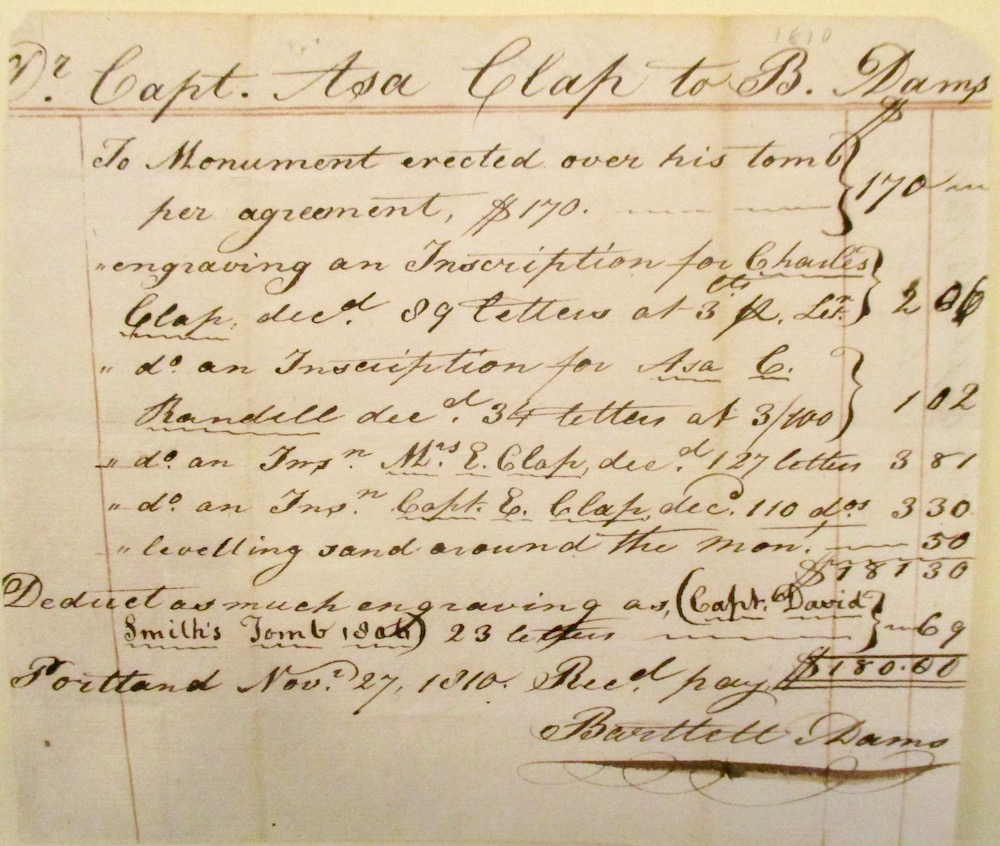 1810
Dr. Capt. Asa Clap to B. Adams
$
To Monument erected over his tomb
per agreement, $170. 170
" engraving an Inscription for Charles
Clap, decd. 89 letters at 3 cts pr. Letr. 2 06
" do. an Inscription for Asa C.
Randell decd 34 letters at 3/100 1 02
" do. an Insn. Mrs. E. Clap, decd. 127 letters 3 81
" do. an Insn. Capt. E. Clap, decd. 110 dos 3 30
" levelling sand around the mont. 50
$181 30
Deduct as much engraving as, (Capt. David
Smith's Tomb 1806) 23 letters 69
Portland Novr. 27, 1810. Recd. pay $180.60
Bartlett Adams